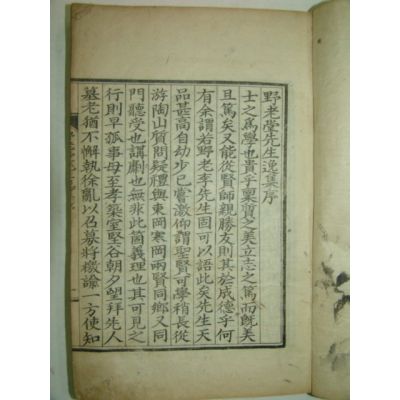 野老堂先生逸集序
士之爲學也貴乎稟質之美立志之篤而旣美
且篤矣又能從賢師親勝友則其於成德乎何
有余謂若野老李先生固可以語此矣先生天
品甚高自幼少已嘗激仰謂聖賢可學稍長從
游陶山質問疑禮與東岡寒岡兩賢同鄕又同
門聽受也講劘也無非此箇義理也其可見之
行則早孤事母至孝築室堅谷朝夕望拜先人
墓老猶不懈執徐亂以召募將檄諭一方使知